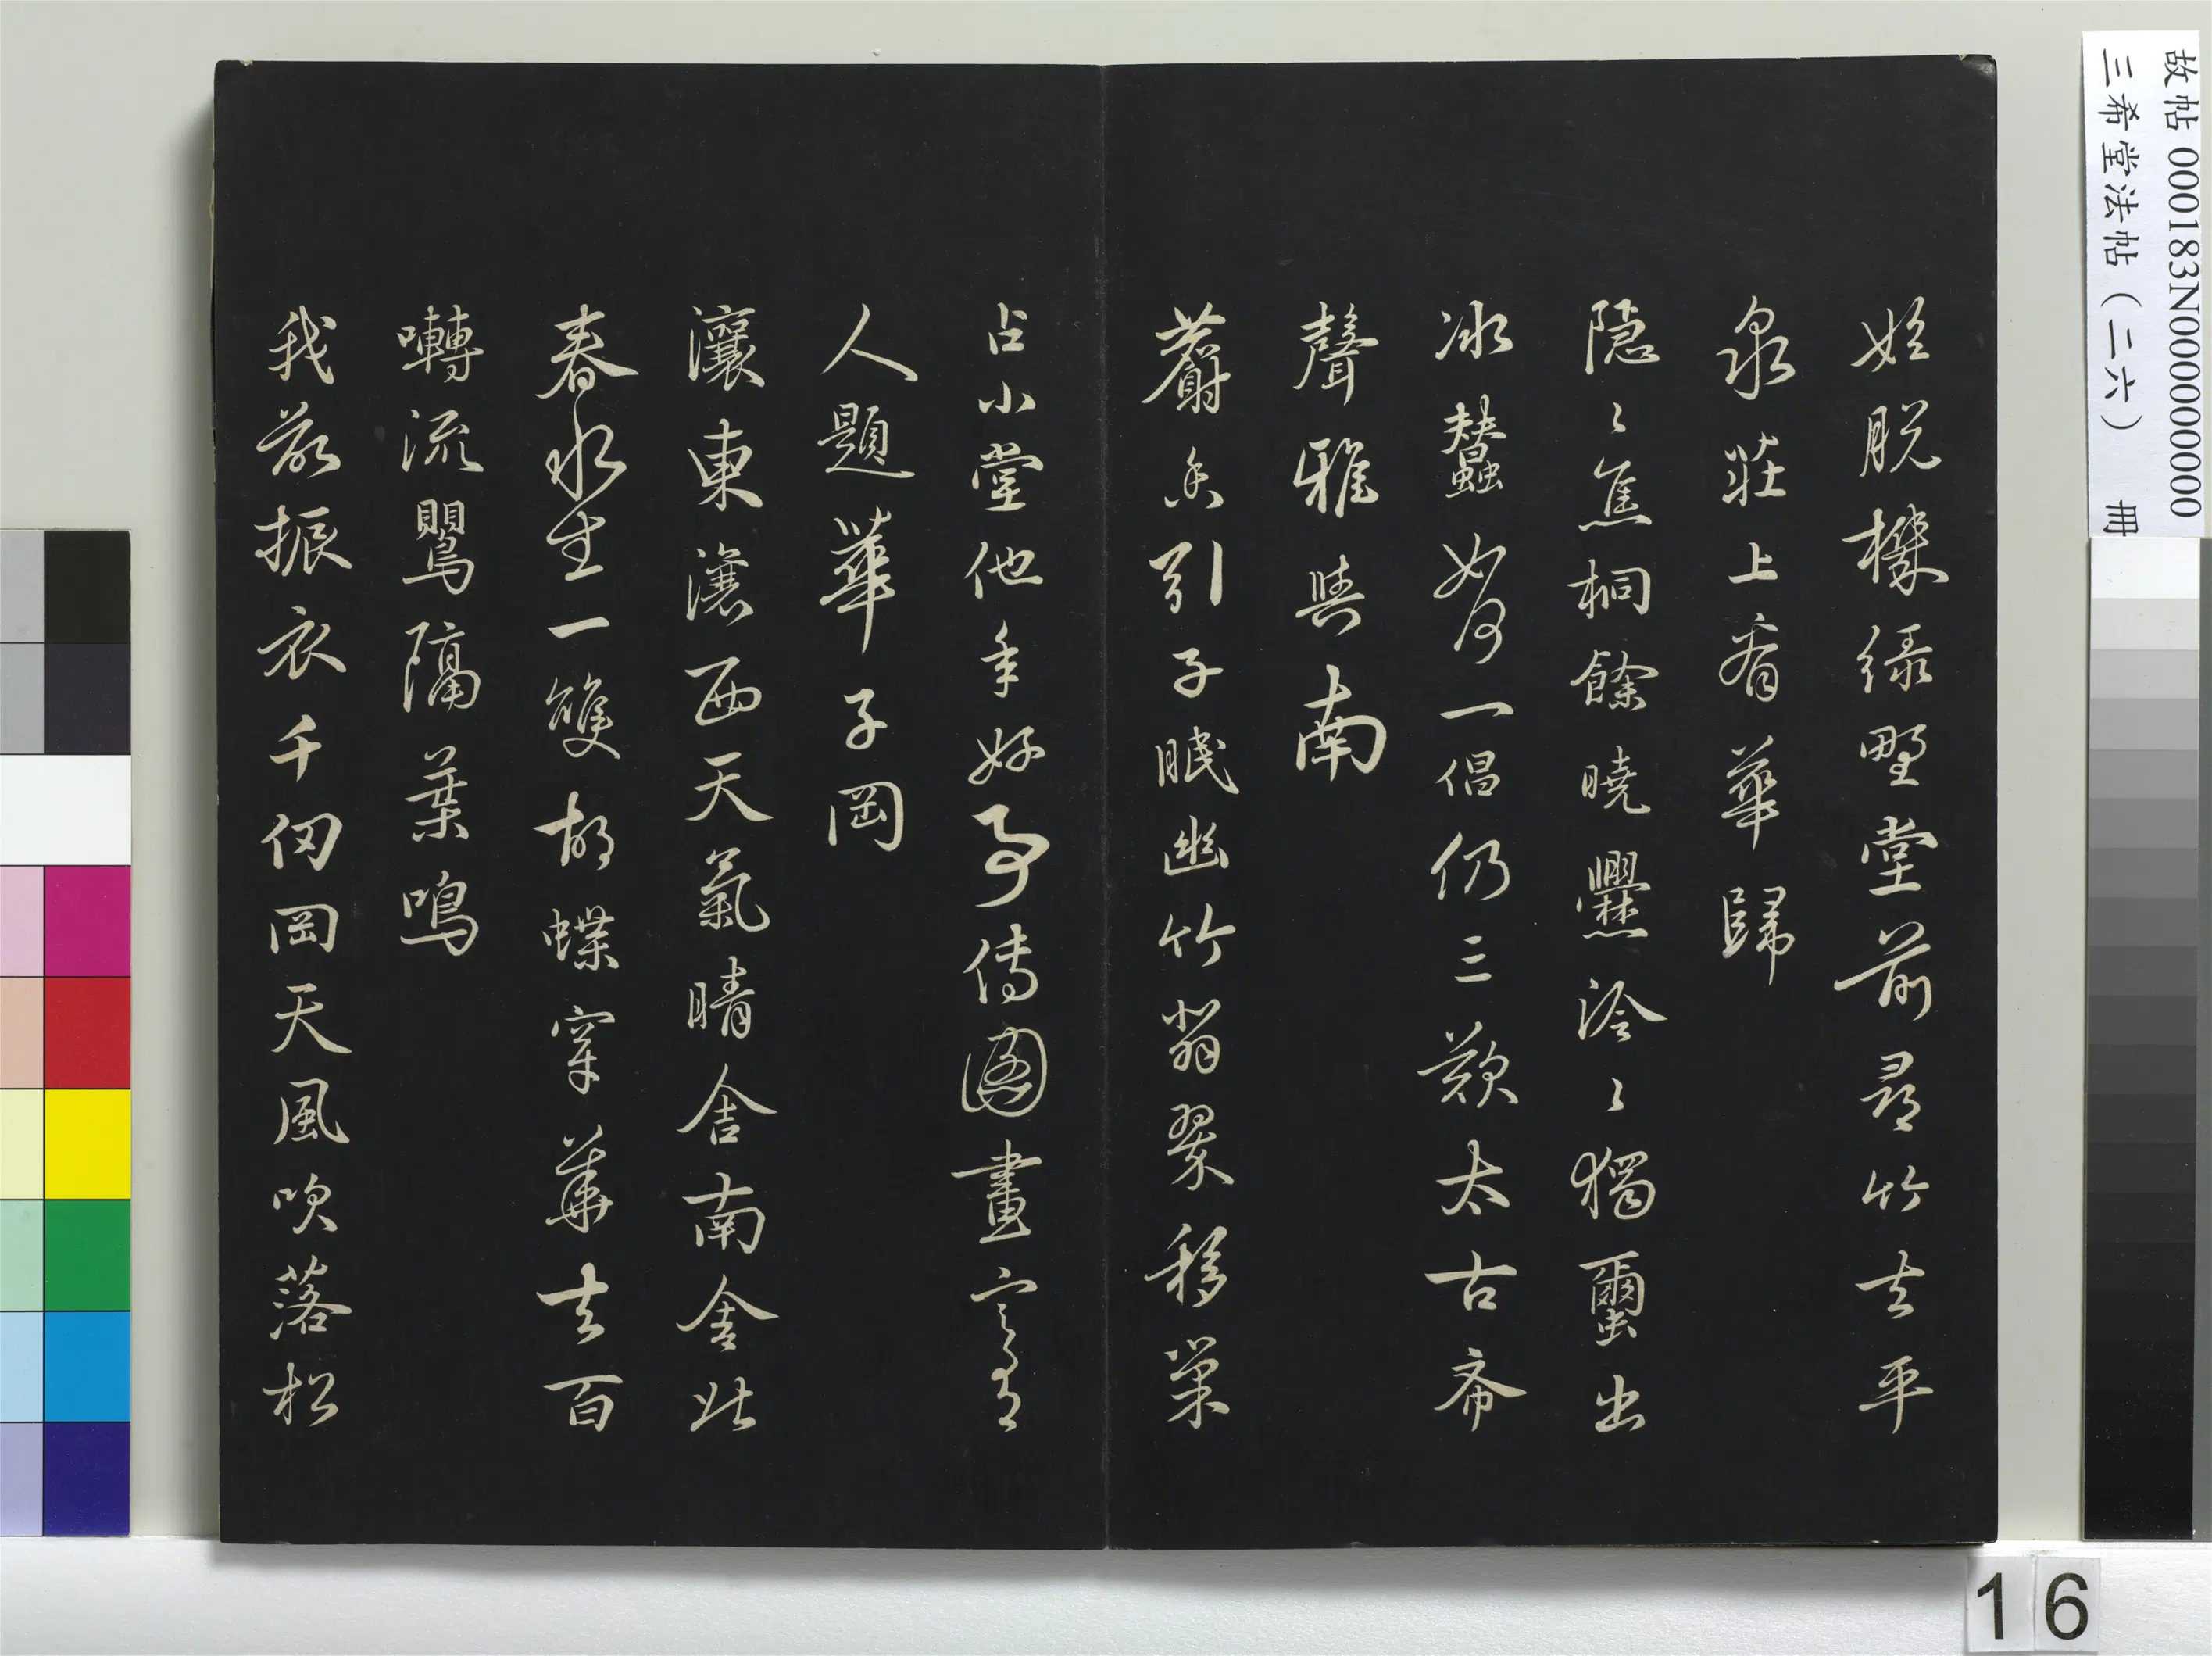 始脱機緑野堂前尋竹去平
泉莊上看華歸
隠〻焦桐餘曉爨泠〻獨蠒出
冰蠶如何一倡仍三歎太古齋
聲雅與南
麝香引子眠幽竹翡翠移巢
占小堂他年好事傳圖畫寄
人題華子岡
瀼東瀼西天氣晴舍南舍北
春水生一雙胡蝶穿華去百
囀流鸎隔葉鳴
我欲振衣千仞岡天風吹落松
故帖 000183N000000000
三希堂法帖（二六） 冊
16